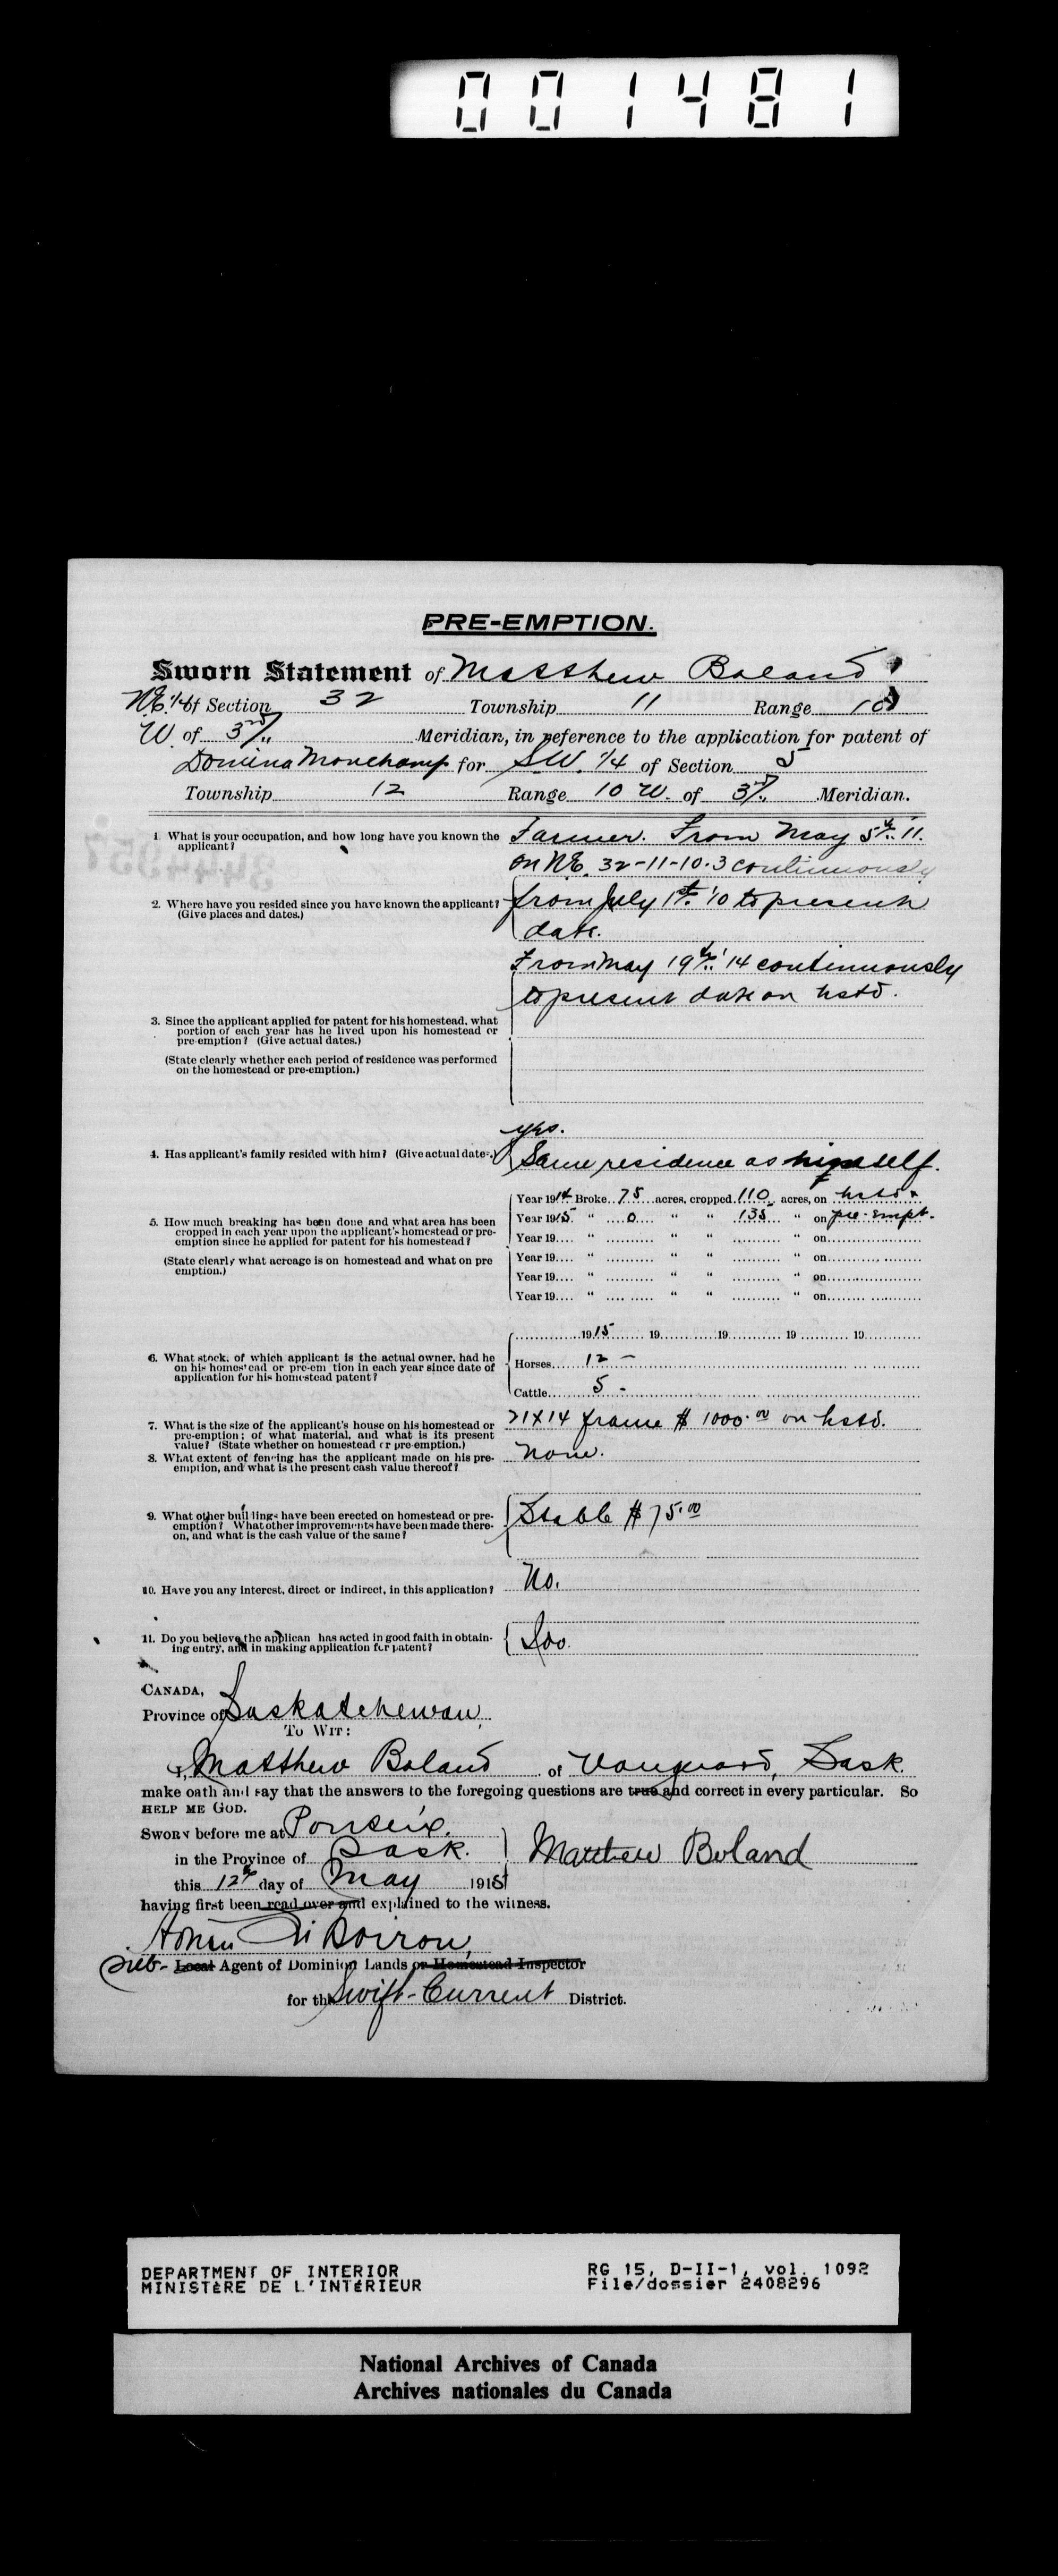 001481
PRE-EMPTION.
Sworn Statement of Matthew Boland
NE 1/4 of Section 32 Township 11 Range 10
W. of 3rd Meridian, in reference to the application for patent of
Domina Monchamp for SW. 1/4 of Section 5
Township 12 Range 10 W. of 3rd Meridian.
1. What is your occupation, and how long have you known the applicant?
Farmer. From May 5th '11.
2. Where have you resided since you have known the applicant?
(Give places and dates.)
on NE. 32-11-10-3 continuously
from July 1st '10 to present
date.
3. Since the applicant applied for patent for his homestead, what
portion of each year has he lived upon his homestead or
pre-emption? (Give actual dates.)
(State clearly whether each period of residence was performed
on the homestead or pre-emption.)
From May 19th '14 continuously
to present date on hstd.
4. Has applicant's family resided with him? (Give actual dates.)
yes.
Same residence as himself.
5. How much breaking has been done and what area has been
cropped in each year upon the applicant's homestead or pre-
emption since he applied for patent for his homestead?
(State clearly what acreage is on homestead and what on pre
emption.)
Year 1914 Broke 75 acres, cropped 110 acres, on hstd &
Year 1915 " 0 " " 135 " on pre-empt.
Year 19 " " " " on
Year 19 " " " " on
Year 19 " " " " on
Year 19 " " " " on
6. What stock, of which applicant is the actual owner, had he
on his homestead or pre-emption in each year since date of
application for his homestead patent?
1915 19 19 19 19
Horses 12 -
Cattle 5 -
7. What is the size of the applicant's house on his homestead or
pre-emption; of what material, and what is its present
value? (State whether on homestead or pre-emption.)
21 x 14 frame $ 1000.00 on hstd.
8. What extent of fencing has the applicant made on his pre-
emption, and what is the present cash value thereof?
None.
9. What other buildings have been erected on homestead or pre-
emption? What other improvements have been made there-
on, and what is the cash value of the same?
Stable $ 75.00
10. Have you any interest, direct or indirect, in this application?
No.
11. Do you believe the applican has acted in good faith in obtain-
ing entry, and in making application for patent?
I do.
CANADA,
Province of Saskatchewan,
TO WIT:
I, Matthew Boland of Vanguard, Sask.
make oath and say that the answers to the foregoing questions are true and correct in every particular. So
HELP ME GOD.
SWORN before me at Ponteix.
in the Province of Sask.
this 12th day of May 1915
Matthew Boland
having first been read over and explained to the witness.
Sub- Local Agent of Dominion Lands or Homestead Inspector
for the Swift-Current District.
DEPARTMENT OF INTERIOR
MINISTÈRE DE L'INTÉRIEUR
RG 15, D-II-1, vol. 1092
File/dossier 2408296
National Archives of Canada
Archives nationales du Canada